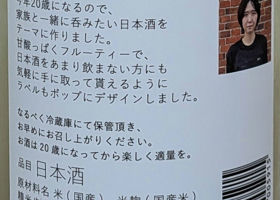 今年20歳になるので、
家族と一緒に呑みたい日本酒を
テーマに作りました。
甘酸っぱくフルーティーで、
日本酒をあまり飲まない方にも
気軽に手に取って貰えるように
ラベルもポップにデザインしました。
なるべく冷蔵庫にて保管頂き、
お早めにお召し上がりください。
お酒は20歳になってから楽しく適量を。
品目 日本酒
原材料名 米(国産)、米麹(国産米)
精米歩